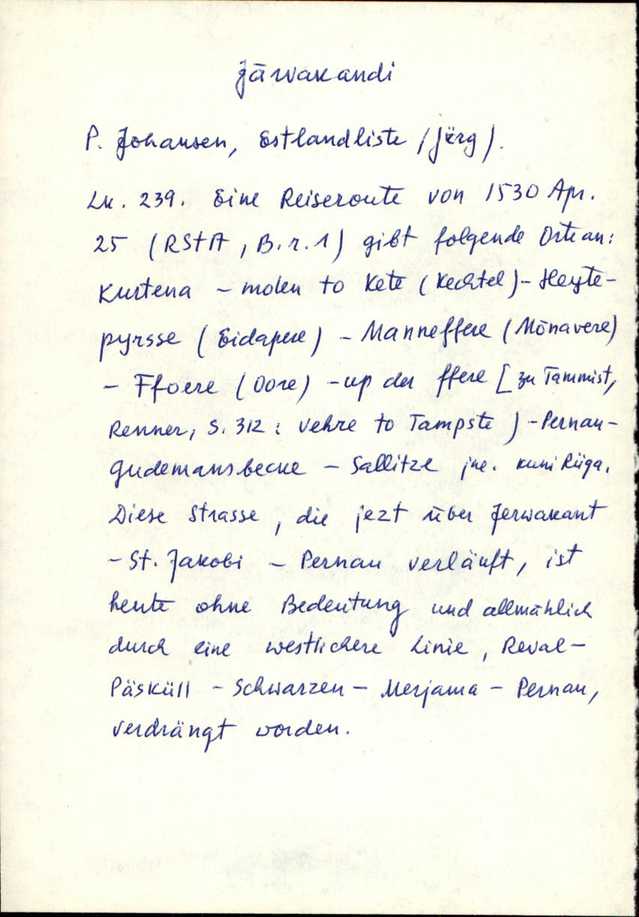 Järvakandi
P. Johansen, Estlandliste (järg).
Lk. 239. Eine Reiseroute von 1530 Apr.
25 (RStA, B.r.1) gibt folgende Orte an:
Kurtena - molen to Kete (Kechtel) - Heyte-
pyrsse (Eidapere) - Manneffere (Mõnavere)
- Ffoere (Oore) - up der ffere [zu Tammist,
Renner, S. 312: vehre to Tampste) - Pernau-
gudemansbecke - Sallitze jne. kuni Riiga.
Diese Strasse, die jezt über Jerwakant
- St. Jakobi - Pernau verläuft, ist
heute ohne Bedeutung und allmählich
durch eine westlichere Linie, Reval-
Päsküll - Schwarzen - Merjama - Pernau,
verdrängt worden.